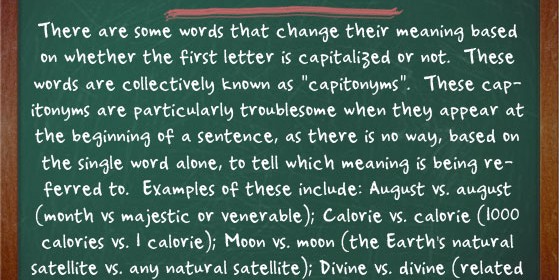 There are some words that change their meaning based
on whether the first letter is capitalized or not.  These
words are collectively known as "capitonyms".  These cap-
itonyms are particularly troublesome when they appear at
the beginning of a sentence, as there is no way, based on
the single word alone, to tell which meaning is being re-
ferred to.  Examples of these include: August vs. august
(month vs majestic or venerable); Calorie vs. calorie (1000
calories vs. 1 calorie); Moon vs. moon (the Earth's natural
satellite vs. any natural satellite); Divine vs. divine (related